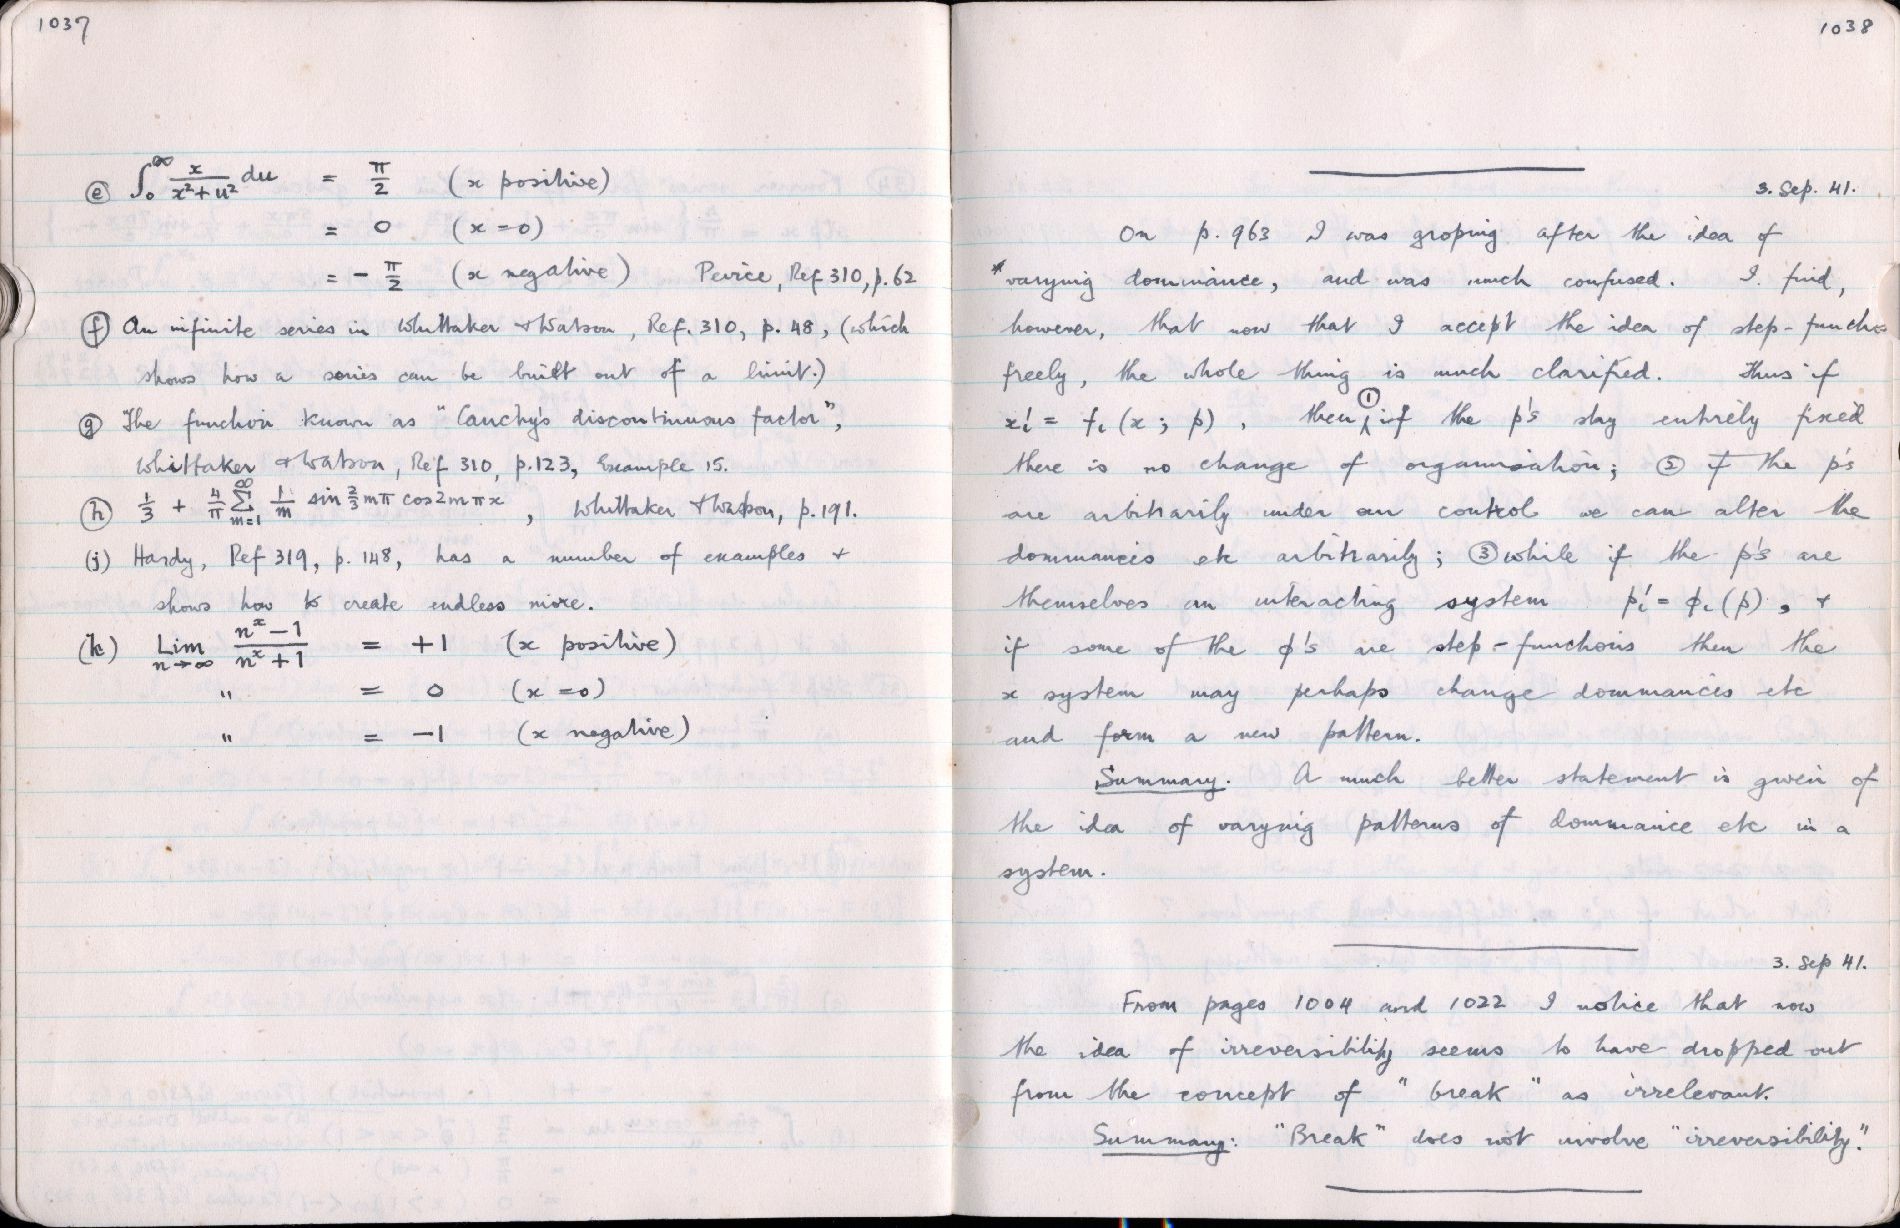 1037
ⓔ ∫₀^∞ x/(x²+u²) du = π/2 (x positive)
= 0 (x=0)
= - π/2 (x negative) Peirce, Ref 310, p. 62
ⓕ An infinite series in Whittaker + Watson, Ref. 310, p. 48, (which
shows how a series can be built out of a limit.)
ⓖ The function known as "Cauchy's discontinuous factor",
Whittaker + Watson, Ref 310, p. 123, Example 15.
ⓗ 1/3 + 4/π ∑_{m=1}^∞ 1/m sin 2/3 mπ cos 2mπx , Whittaker + Watson, p. 191.
(j) Hardy, Ref 319, p. 148, has a number of examples +
shows how to create endless more.
(k) Lim_{n→∞} (nˣ-1)/(nˣ+1) = +1 (x positive)
" = 0 (x=0)
" = -1 (x negative)
1038
3. Sep. 41.
On p. 963 I was groping after the idea of
varying dominance, and was much confused. I find,
however, that now that I accept the idea of step-functions
freely, the whole thing is much clarified. Thus if
xᵢ' = fᵢ(x; p), then ① if the p's stay entirely fixed
there is no change of organisation; ② if the p's
are arbitrarily under our control we can alter the
dominances etc arbitrarily; ③ while if the p's are
themselves an interacting system pᵢ' = ϕᵢ(p), +
if some of the ϕ's are step-functions then the
x system may perhaps change dominances etc
and form a new pattern.
Summary. A much better statement is given of
the idea of varying patterns of dominance etc in a
system.
3. Sep 41.
From pages 1004 and 1022 I notice that now
the idea of irreversibility seems to have dropped out
from the concept of "break" as irrelevant.
Summary: "Break" does not involve "irreversibility."